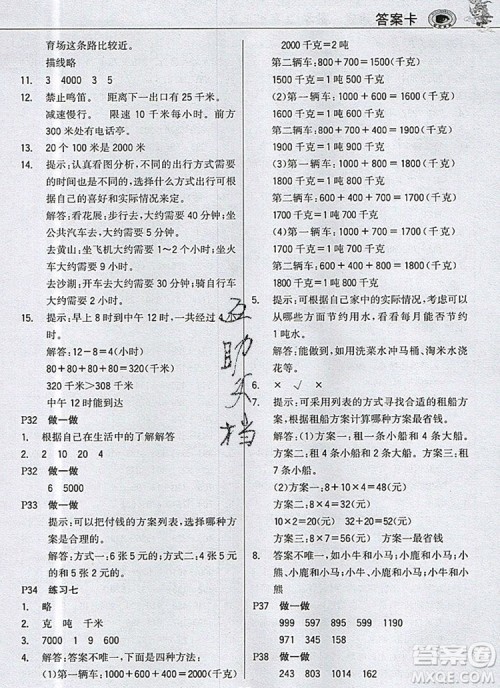 答案卡
育场这条路比较近。
描线略
11. 3 4000 3 5
12. 禁止鸣笛。 距离下一出口有 25 千米。
减速慢行。 限速 10 千米每小时。 前方
300 米处有电话亭。
13. 20 个 100 米是 2000 米
14. 提示：认真看图分析，不同的出行方式需要
的时间也是不同的，选择什么方式出行可以
根据自己的喜好和实际情况来定。
解答：看花展：步行去，大约需要 40 分钟；坐
公共汽车去大约需要 5 分钟。
去黄山：坐飞机大约需要 1～2 个小时；坐火
车大约需要 9 个小时。
去沙湖：开车去大约需要 30 分钟；骑自行车
大约需要 2 小时。
15. 提示：早上 8 时到中午 12 时，一共经过了 4
小时。
解答：12－8＝4(小时)
80＋80＋80＋80＝320(千米)
320 千米＞308 千米
中午 12 时能到达
P32 做一做
1. 根据自己在生活中的了解解答
2. 2 10 20 4
P32 做一做
6 5000
P33 做一做
提示：可以把付钱的方案列表，选择哪种方
案是合理的。
解答：方式一：6 张 5 元的；方式二：5 张 5 元
的和 2 张 2 元的。
P34 练习七
1. 略
2. 克 吨 千米
3. 7000 1 9 6 5
4. 解答：答案不唯一，下面提供四种方法：
(1)第一辆车：1000＋600＋400＝2000(千克)
2000 千克＝2 吨
第二辆车：800＋700＝1500(千克)
1500 千克＝1 吨 500 千克
(2)第一辆车：1000＋600＝1600(千克)
1600 千克＝1 吨 600 千克
第二辆车：400＋800＋700＝1900(千克)
1900 千克＝1 吨 900 千克
(3)第一辆车：1000＋800＝1800(千克)
1800 千克＝1 吨 800 千克
第二辆车：600＋400＋700＝1700(千克)
1700 千克＝1 吨 700 千克
(4)第一辆车：1000＋700＝1700(千克)
1700 千克＝1 吨 700 千克
第二辆车：600＋400＋800＝1800(千克)
1800 千克＝1 吨 800 千克
5. 提示：可根据自己家中的实际情况，看可以
从哪些方面节约用水，看看多长时间能节约
1 吨水。
解答：例如：用洗菜水冲马桶、淘米水浇
花等。
6. × √ ×
7. 提示：可采用列表的方式寻找合适的租船
方案，根据租船方案计算哪种方案最省钱。
解答：(1)方案一：租 1 只小船和 4 只大船。
方案二：租 4 只小船和 2 只大船。方案三：租
7 只小船。
(2)方案一：8＋10×4＝48(元)
方案二：8×4＝32(元)
10×2＝20(元) 32＋20＝52(元)
方案三：8×7＝56(元)
方案一最省钱。
8. 答案不唯一，如小牛和小马；小牛、小马和小
熊；小熊、小鹿和小马；小鹿、小牛和小马；小
熊、小鹿和小牛。
P37 做一做
999 595 897 991
145 392 629 830
P38 做一做
243 803 1014 162
互助文档
答案圈